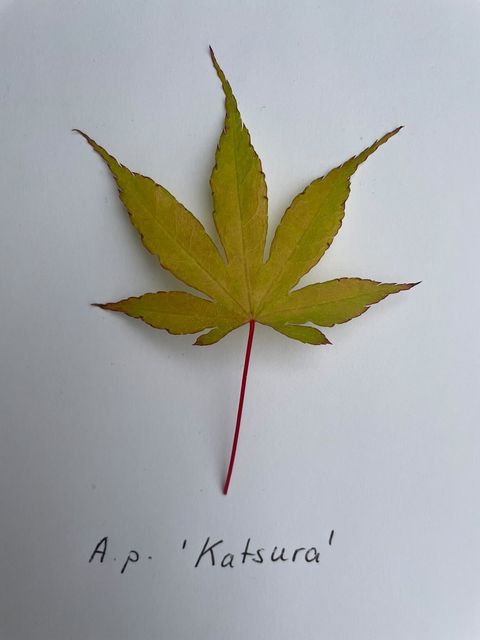 A.p. 'Katsura'